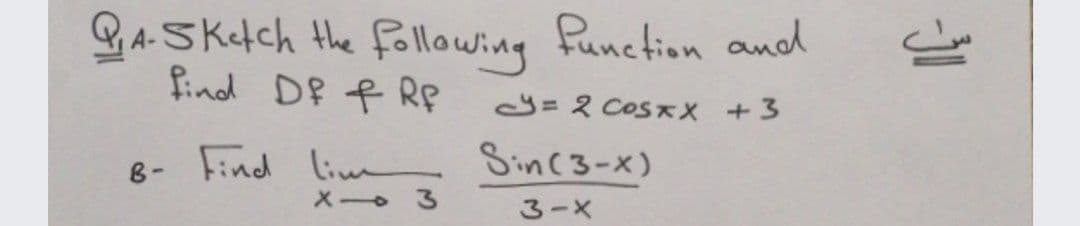 Q1 A- Sketch the following function and
find Df & Rf y = 2 cos πx + 3
B- Find lim x→3 Sin(3-x) / 3-x